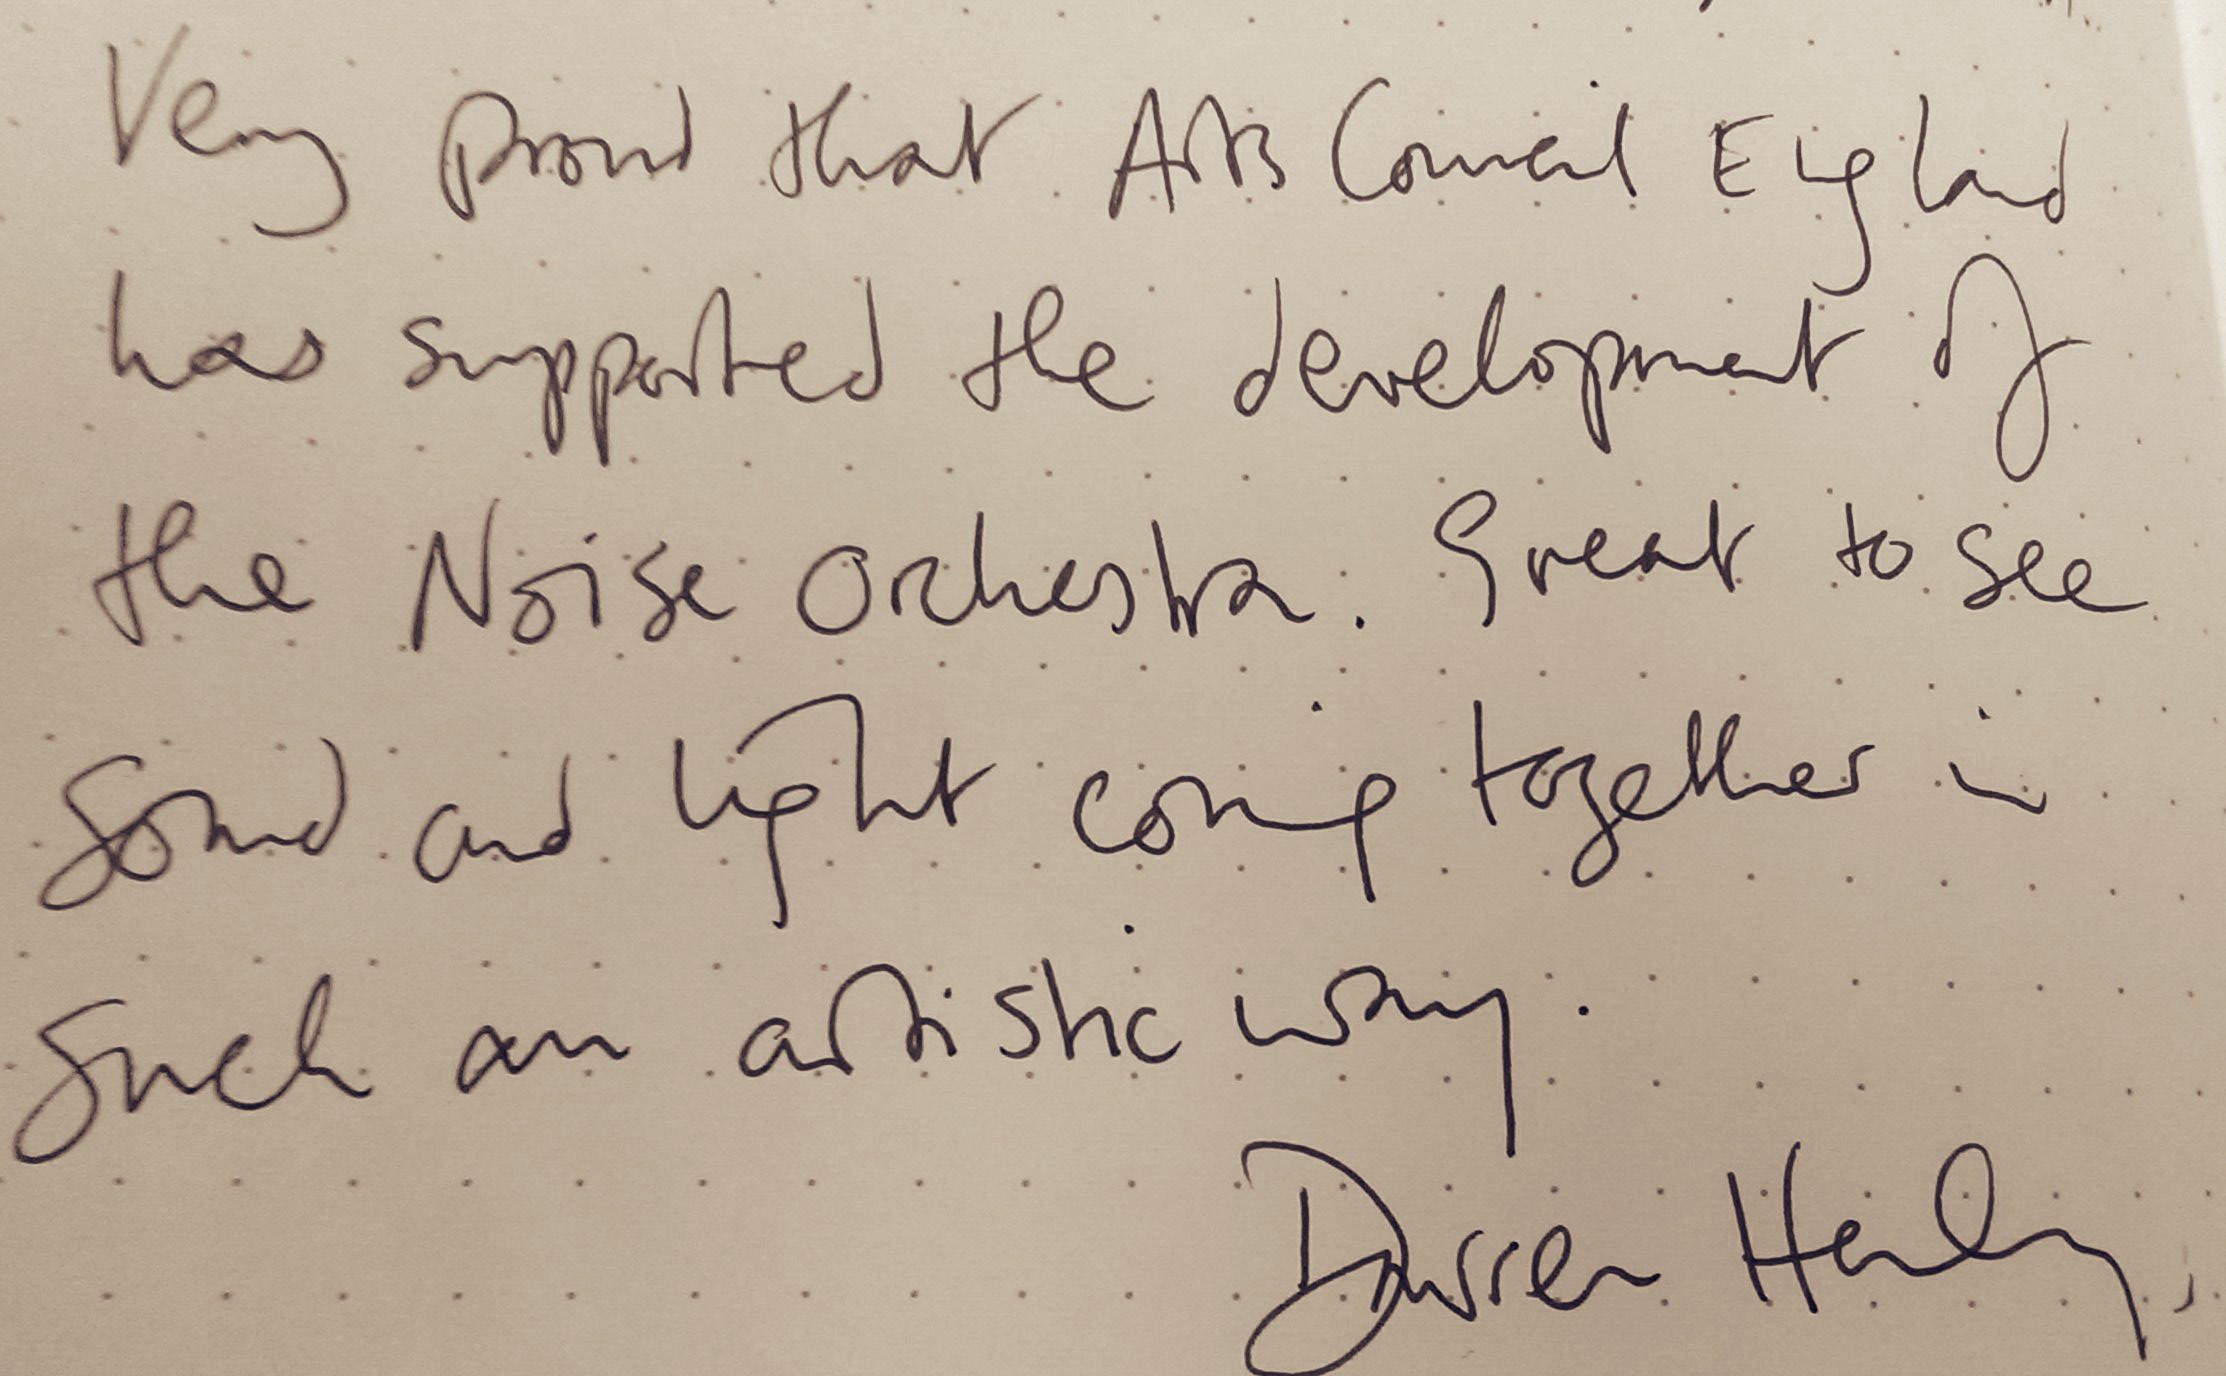 Very proud that Arts Council England
has supported the development of
the Noise Orchestra. Great to see
sound and light coming together in
such an artistic way.
Darren Henley,